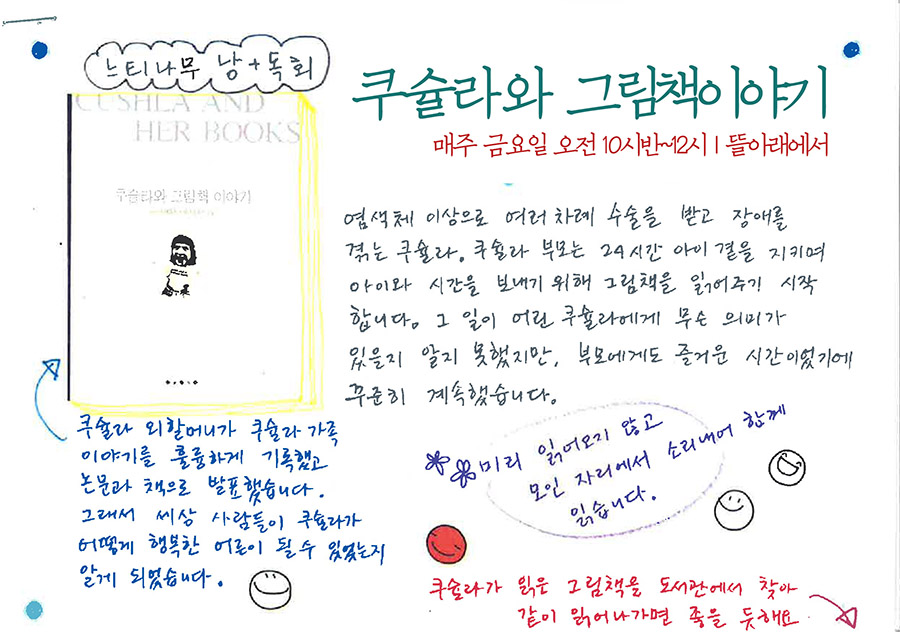 느티나무 낭+독회
쿠슐라와 그림책이야기
매주 금요일 오전 10시반~12시 | 뜰아래에서
CUSHLA AND
HER BOOKS
쿠슐라와 그림책 이야기
염색체 이상으로 여러 차례 수술을 받고 장애를
겪는 쿠슐라. 쿠슐라 부모는 24시간 아이 곁을 지키며
아이와 시간을 보내기 위해 그림책을 읽어주기 시작
합니다. 그 일이 어린 쿠슐라에게 무슨 의미가
있을지 알지 못했지만, 부모에게도 즐거운 시간이었기에
꾸준히 계속했습니다.
쿠슐라 외할머니가 쿠슐라 가족
이야기를 훌륭하게 기록했고
논문과 책으로 발표했습니다.
그래서 세상 사람들이 쿠슐라가
어떻게 행복한 어른이 될 수 있었는지
알게 되었습니다.
미리 읽어오지 않고
모인 자리에서 소리내어 함께
읽습니다.
쿠슐라가 읽은 그림책을 도서관에서 찾아
같이 읽어나가면 좋을 듯해요